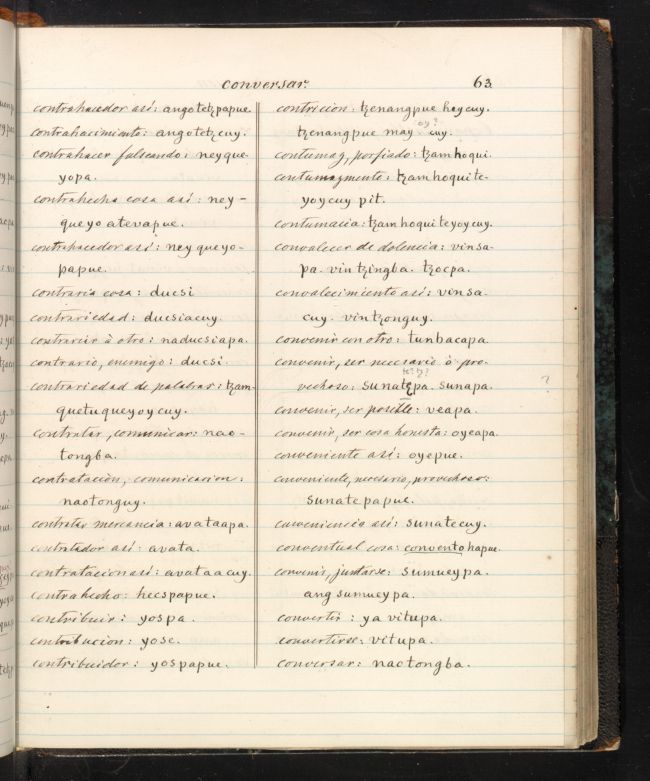 conversar.
63.
contrahacedor asi: angotetzpapue.
contrahacimiento: angotetzcuy.
contrahacer falseando: neyque-
yopa.
contrahecha cosa asi: ney-
queyo atevapue.
contrahacedor asi: neyqueyo-
papue.
contraria cosa: ducsi
contrariedad: ducsiacuy.
contrarir à otro: naducsiapa.
contrario, enemigo: ducsi.
contrariedad de palabras: tzam-
quetuqueyoycuy.
contratar, comunicar: nao-
tongba.
contratacion, comunicacion:
naotonguy.
contratar mercancia: avataapa.
contratador asi: avata.
contratacion asi: avataacuy.
contrahecho: hecspapue.
contribuir: yospa.
contribucion: yose.
contribuidor: yospapue.
contricion: tzenangpue haycuy.
oy?
tzenangpue may cuy.
contumaz, porfiado: tzamhoqui.
contumazmente: tzamhoquite-
yoycuy pit.
contumacia: tzamhoquiteyoycuy.
convalecer de dolencia: vinsa-
pa. vintzingba. tzocpa.
convalecimiento asi: vinsa-
cuy. vintzonguy.
convenir con otro: tunbacapa.
convenir, ser necesario ò pro-
vechoso: sunatzpa. sunapa.
?
convenir, ser posible: veapa.
convenir, ser cosa honesta: oyeapa.
conveniente asi: oyepue.
conveniente, necesario, provechoso:
sunatepapue.
conveniencia asi: sunatecuy.
conventual cosa: conventohapue.
convenir, juntarse: sumueypa.
angsumueypa.
convertir: yavitupa.
convertirse: vitupa.
conversar: naotongba.